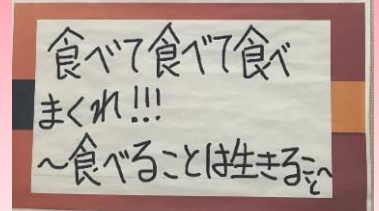 食べて食べて食べ
まくれ!!!
～食べることは生きること～